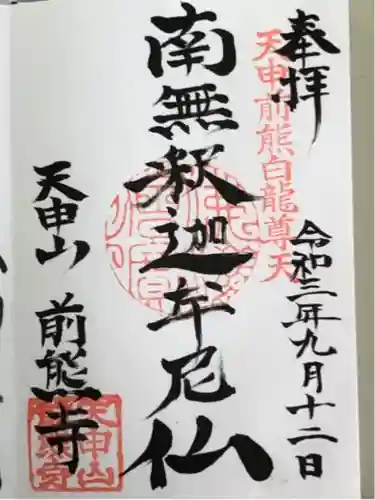 奉拝
令和三年九月十二日
天申前熊白龍尊天
南無釈迦牟尼仏
天申山 前熊寺
天申山